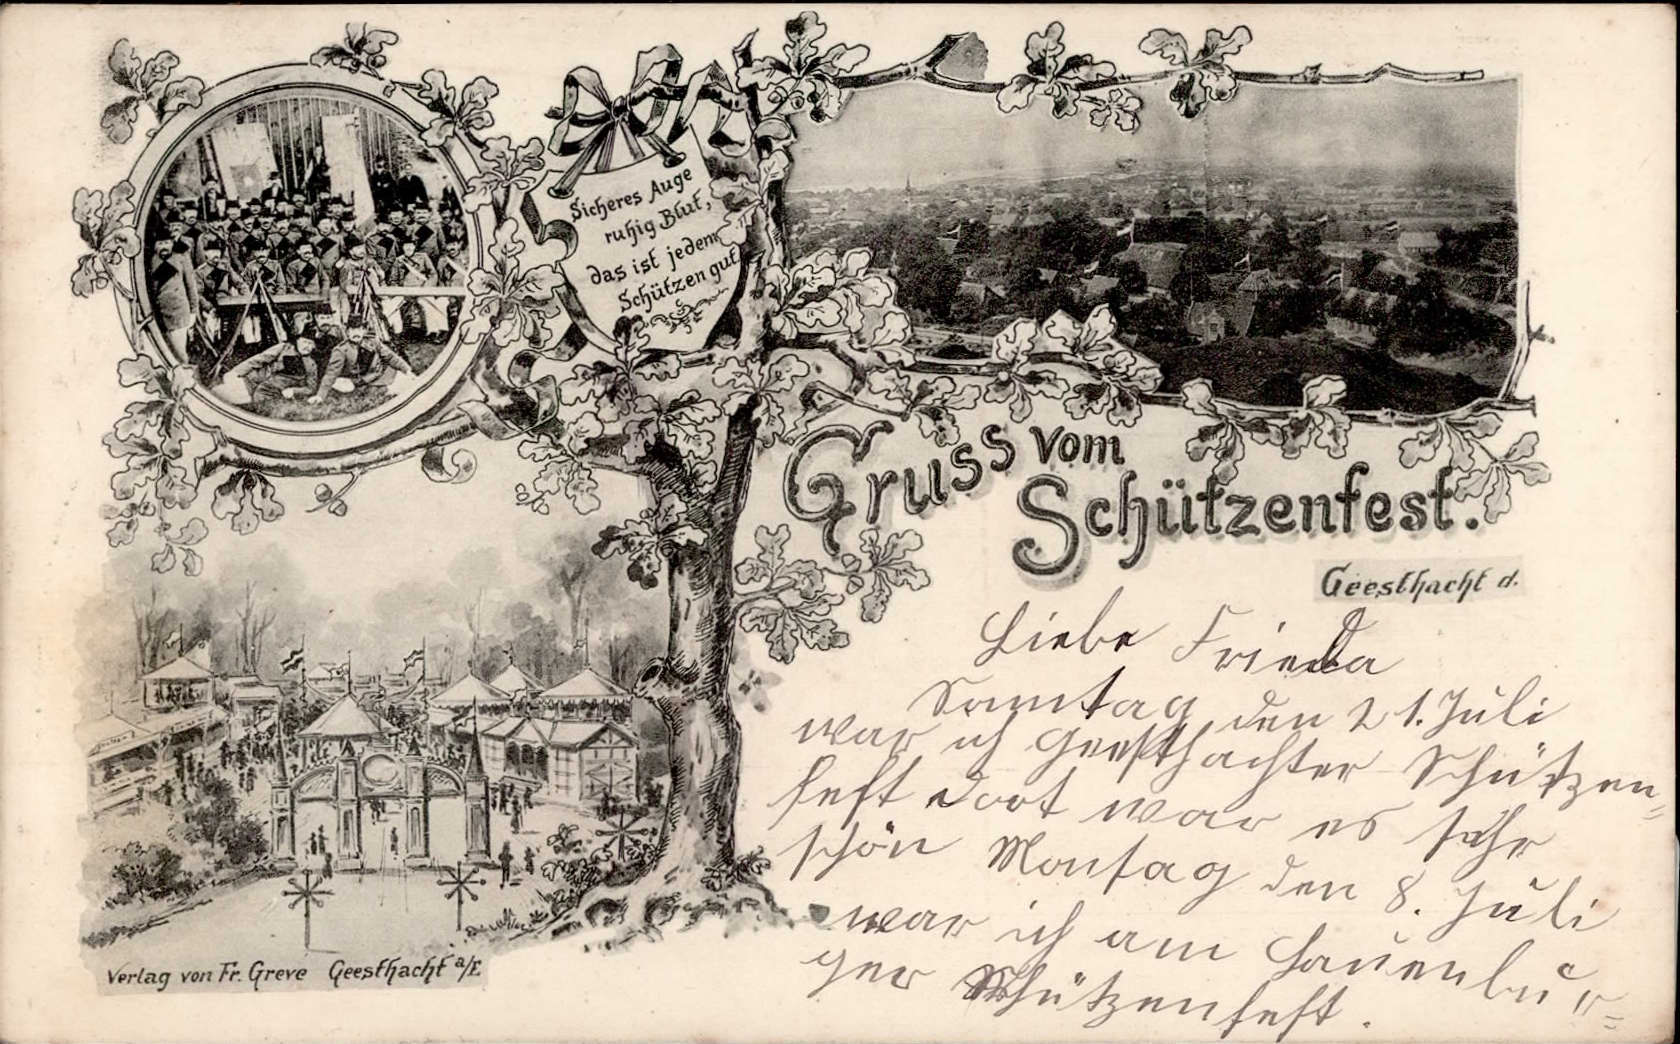 Sicheres Auge
ruhig Blut,
das ist jedem
Schützen gut.
Gruss vom
Schützenfest.
Geesthacht d.
Liebe Frieda
Sonntag den 21. Juli
war ich Geesthachter Schützen=
fest dort war es sehr
schön Montag den 8. Juli
war ich am Lauenbur=
ger Schützenfest.
Verlag von Fr. Greve Geesthacht a/E